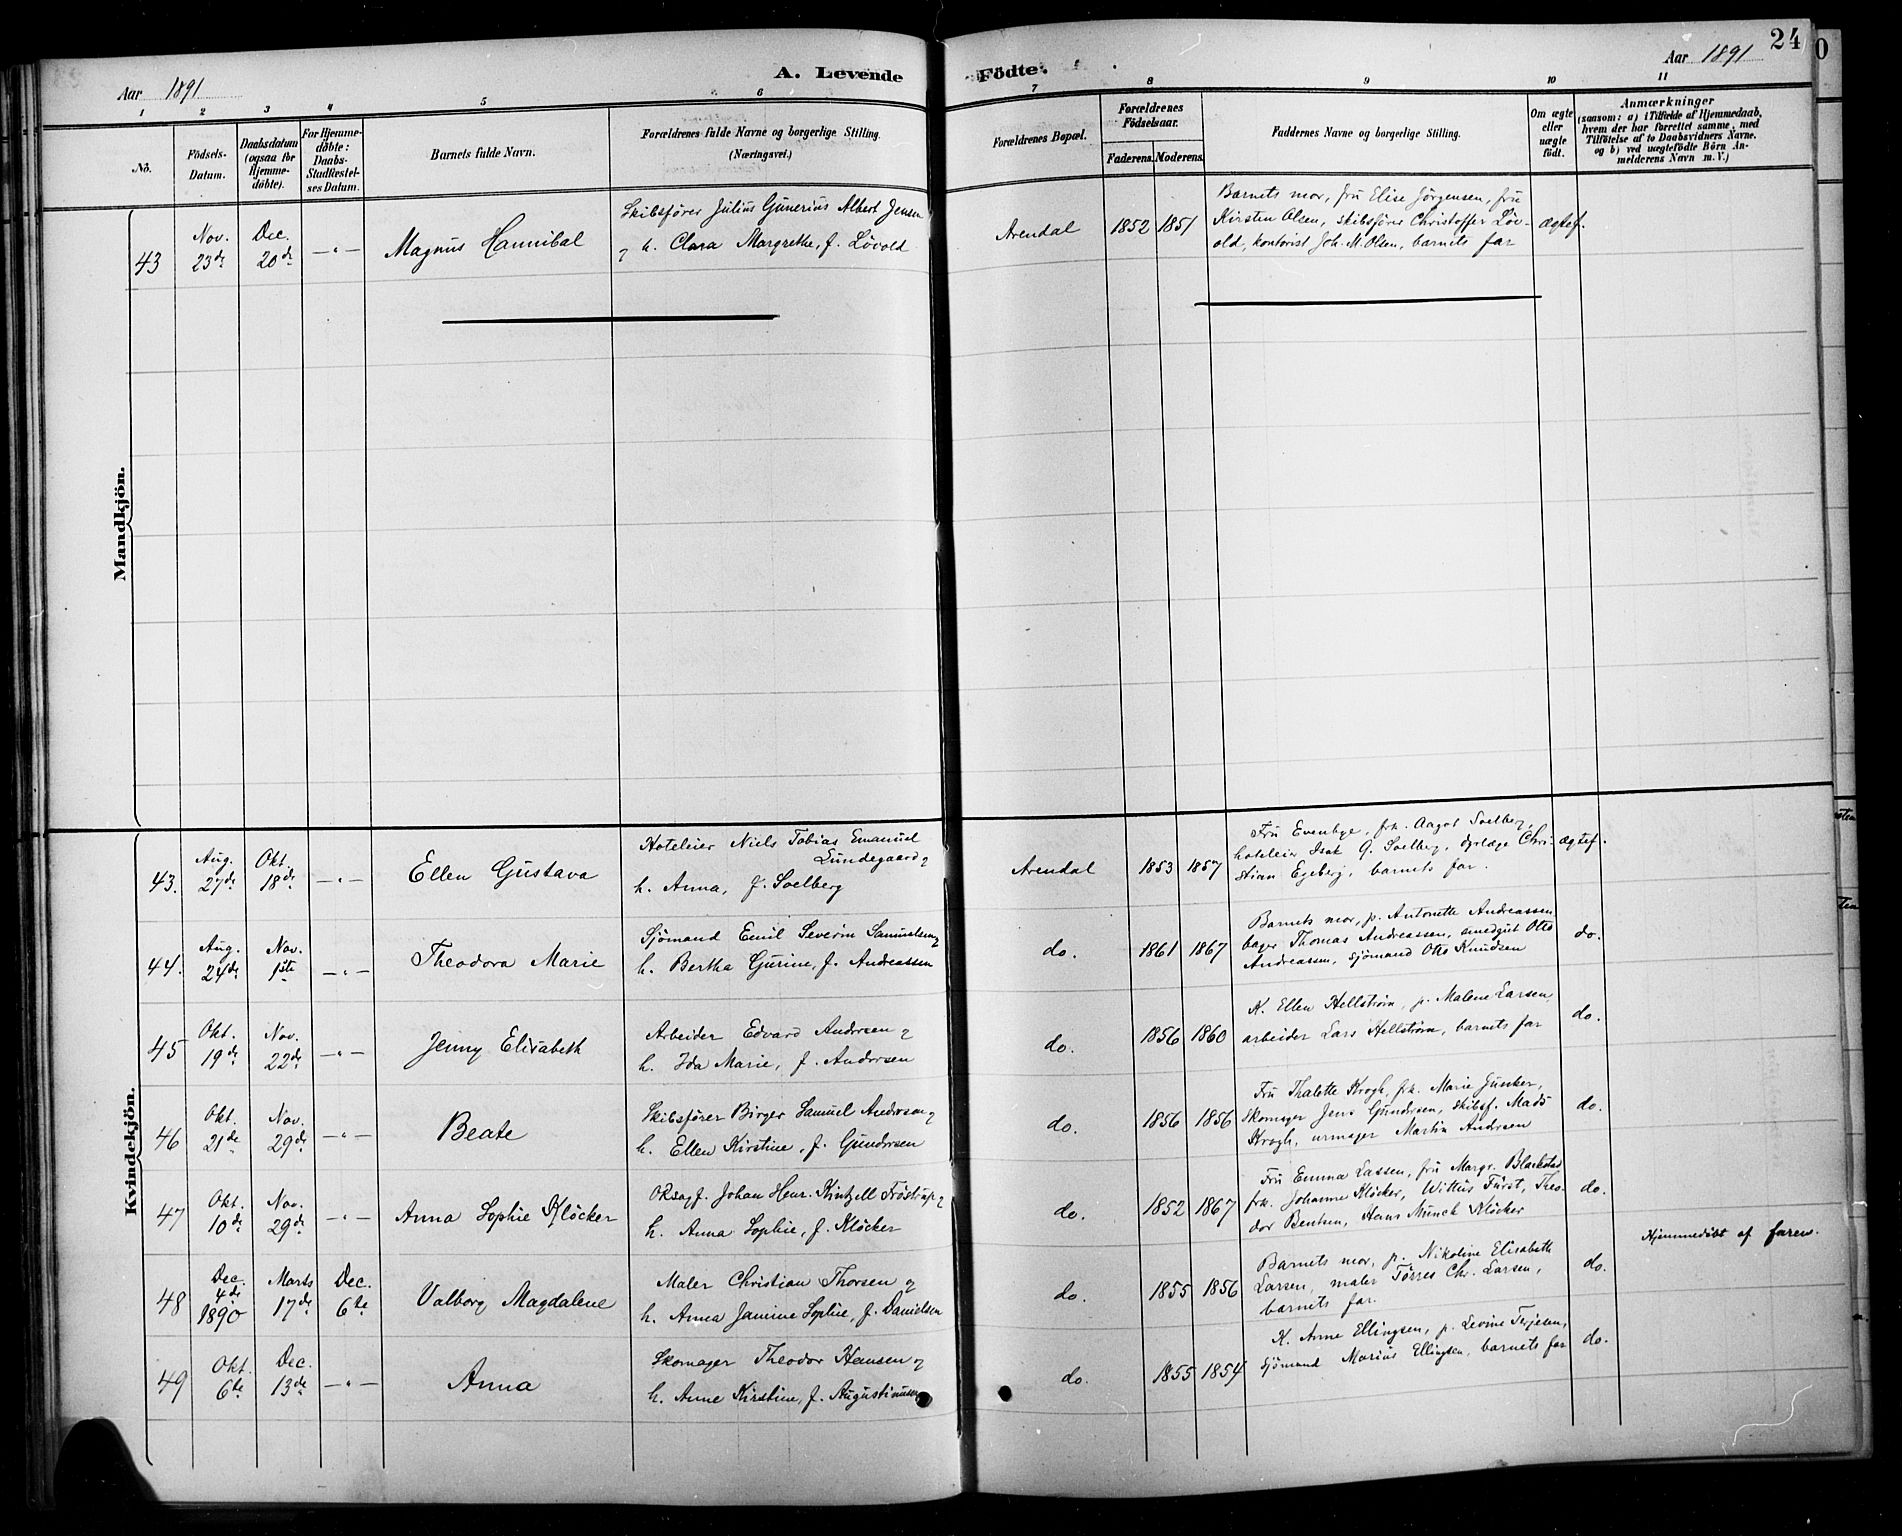 24
0
Aar 1891
A. Levende
Födte.
Aar 1891
1 2 3 4 5 6 7 8 9 10 11
No.
Födsels-Datum.
Daabsdatum (ogsaa for Hjemmedöbte).
For Hjemmedöbte: Daabs-Stadfæstelses Datum.
Barnets fulde Navn.
Forældrenes fulde Navne og borgerlige Stilling.
(Næringsvei.)
Forældrenes Bopæl.
Forældrenes Födselsaar.
Faderens. Moderens.
Faddernes Navne og borgerlige Stilling.
Om ægte eller uægte födt.
Anmærkninger
(saasom: a) i Tilfælde af Hjemmedaab, hvem der har forrettet samme, med Tilföielse af to Daabsvidners Navne. og b) ved uægtefödte Börn Anmelderens Navn m. V.)
Mandkjön.
43
Nov. 23de
Dec. 20de
—„—
Magnus Hannibal
Skibsfører Julius Gunerius Albert Jensen
& h. Clara Margrethe, f. Løvold
Arendal
1852 1851
Barnets mor, fru Elise Jørgensen, fru
Kirsten Olsen, skibsfører Christoffer Løv-
old, kontorist Joh. M. Olsen, barnets far
Ægtef.
Kvindekjön.
43.
Aug. 27de
Okt. 18de
—„—
Ellen Gustava
Hoteleier Niels Tobias Emanuel
Lundegaard &
h. Anna, f. Soelberg
Arendal
1853 1857
Fru Evenbye, frk. Aagot Soelberg,
hoteleier Isak G. Soelberg, dyrlæge Chri-
stian Egeberg, barnets far.
Ægtef.
44.
Aug. 24de
Nov. 1ste
—„—
Theodora Marie
Sjømand Emil Severin Samuelsen &
h. Bertha Gurine, f. Andreassen
do.
1861 1867
Barnets mor, p. Antonette Andreassen
bager Thomas Andreassen, smedgut Otto
Andreassen, sjømand Otto Knudsen
do.
45
Okt. 19de
Nov. 22de
—„—
Jenny Elisabeth
Arbeider Edvard Andersen &
h. Ida Marie, f. Andersen
do.
1856 1860
K. Ellen Hellstrøm, p. Malene Larsen,
arbeider Lars Hellstrøm, barnets far
do.
46
Okt. 21de
Nov. 29de
—„—
Beate
Skibsfører Birger Samuel Andersen &
h. Ellen Kirstine, f. Gundersen
do.
1856 1856
Fru Thalette Krogh, frk. Marie Junker,
Skomager Jens Gundersen, skibsf. Mads
Krogh, urmager Martin Andersen
do.
47
Okt. 10de
Nov. 29de
—„—
Anna Sophie Kløcker
O.Rsagf. Johan Henr. Kintzell Frøstrup &
h. Anna Sophie, f. Kløcker
do.
1852 1867
Fru Emma Lassen, fru Margr. Blackstad
frk. Johanne Kløcker, Wittus Fürst, Theo-
dor Bentsen, Hans Munck Kløcker
do.
48
Dec. 4de 1890
Marts 17de
Dec. 6te
Valborg Magdalene
Maler Christian Thorsen og
h. Anna Janine Sophie, f. Danielsen
do.
1855 1856
Barnets mor, p. Nikoline Elisabeth
Larsen, maler Tørres Chr. Larsen,
barnets far.
do.
Hjemmedøbt af faren.
49
Okt. 6te
Dec. 13de
—„—
Anna
Skomager Theodor Hansen og
h. Anne Kirstine, f. Augustinusen
do.
1855 1854
K. Anne Ellingsen, p. Levine Terjesen,
sjømand Marius Ellingsen, barnets far
do.